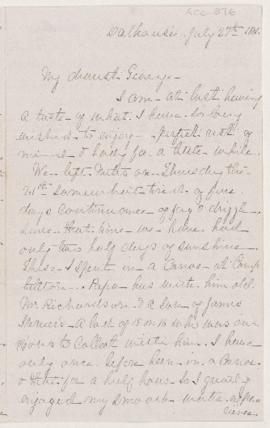 ACC 376
Dalhousie July 27th 1881.
My dearest George -
I am at last having
a taste of what I have so long
wished to enjoy - perfect rest of
mind & body for a little while
We left Metis on Thursday the
21st somewhat tired of five
days continuance of fog & drizzle
here. Here time we have had
only two half days of sunshine
These I spent in a Canoe at Camp-
bellton. Papa has with him old
Mr Richardson & a son of James
a lad of 15 or 16 who was our
to collect with him. I have
only once before been in a Canoe
& then for a half hour so I greatly
enjoyed my smooth water expe-
rience